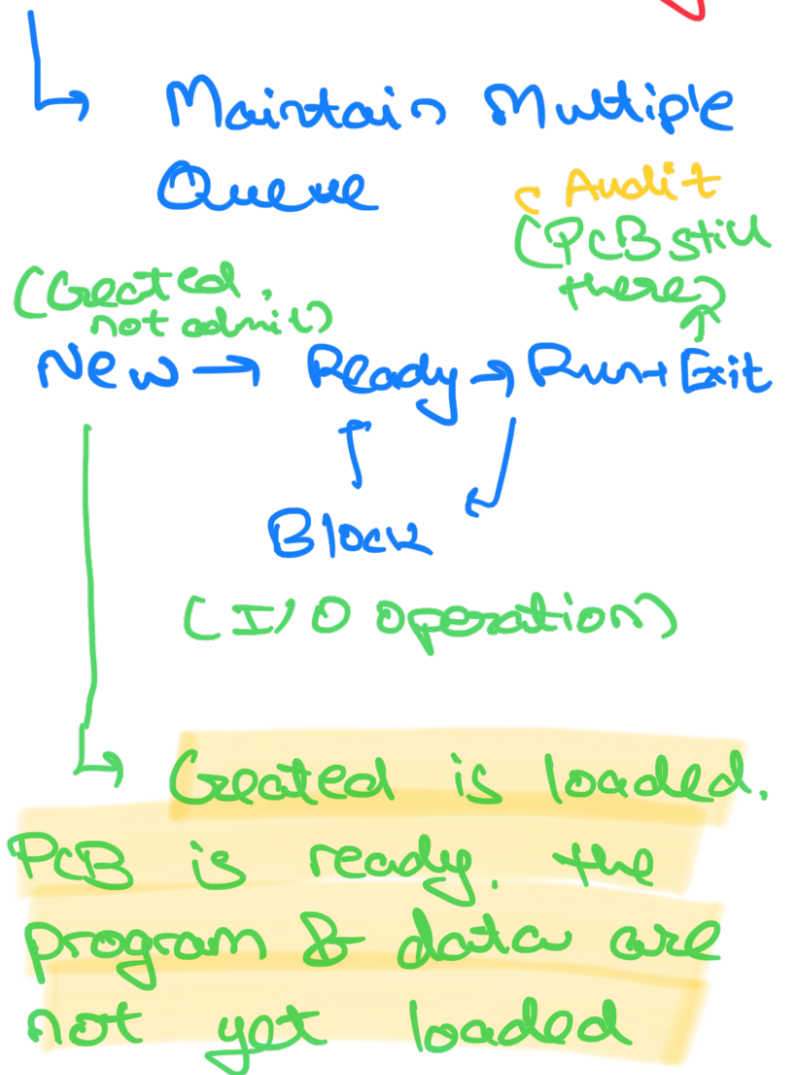 Maintain Multiple
Queue
( Audit
(PCB still
there)
(Created,
not admit)
New → Ready → Run → Exit
Block
(I/O operation)
Created is loaded.
PCB is ready. the
program & data are
not yet loaded